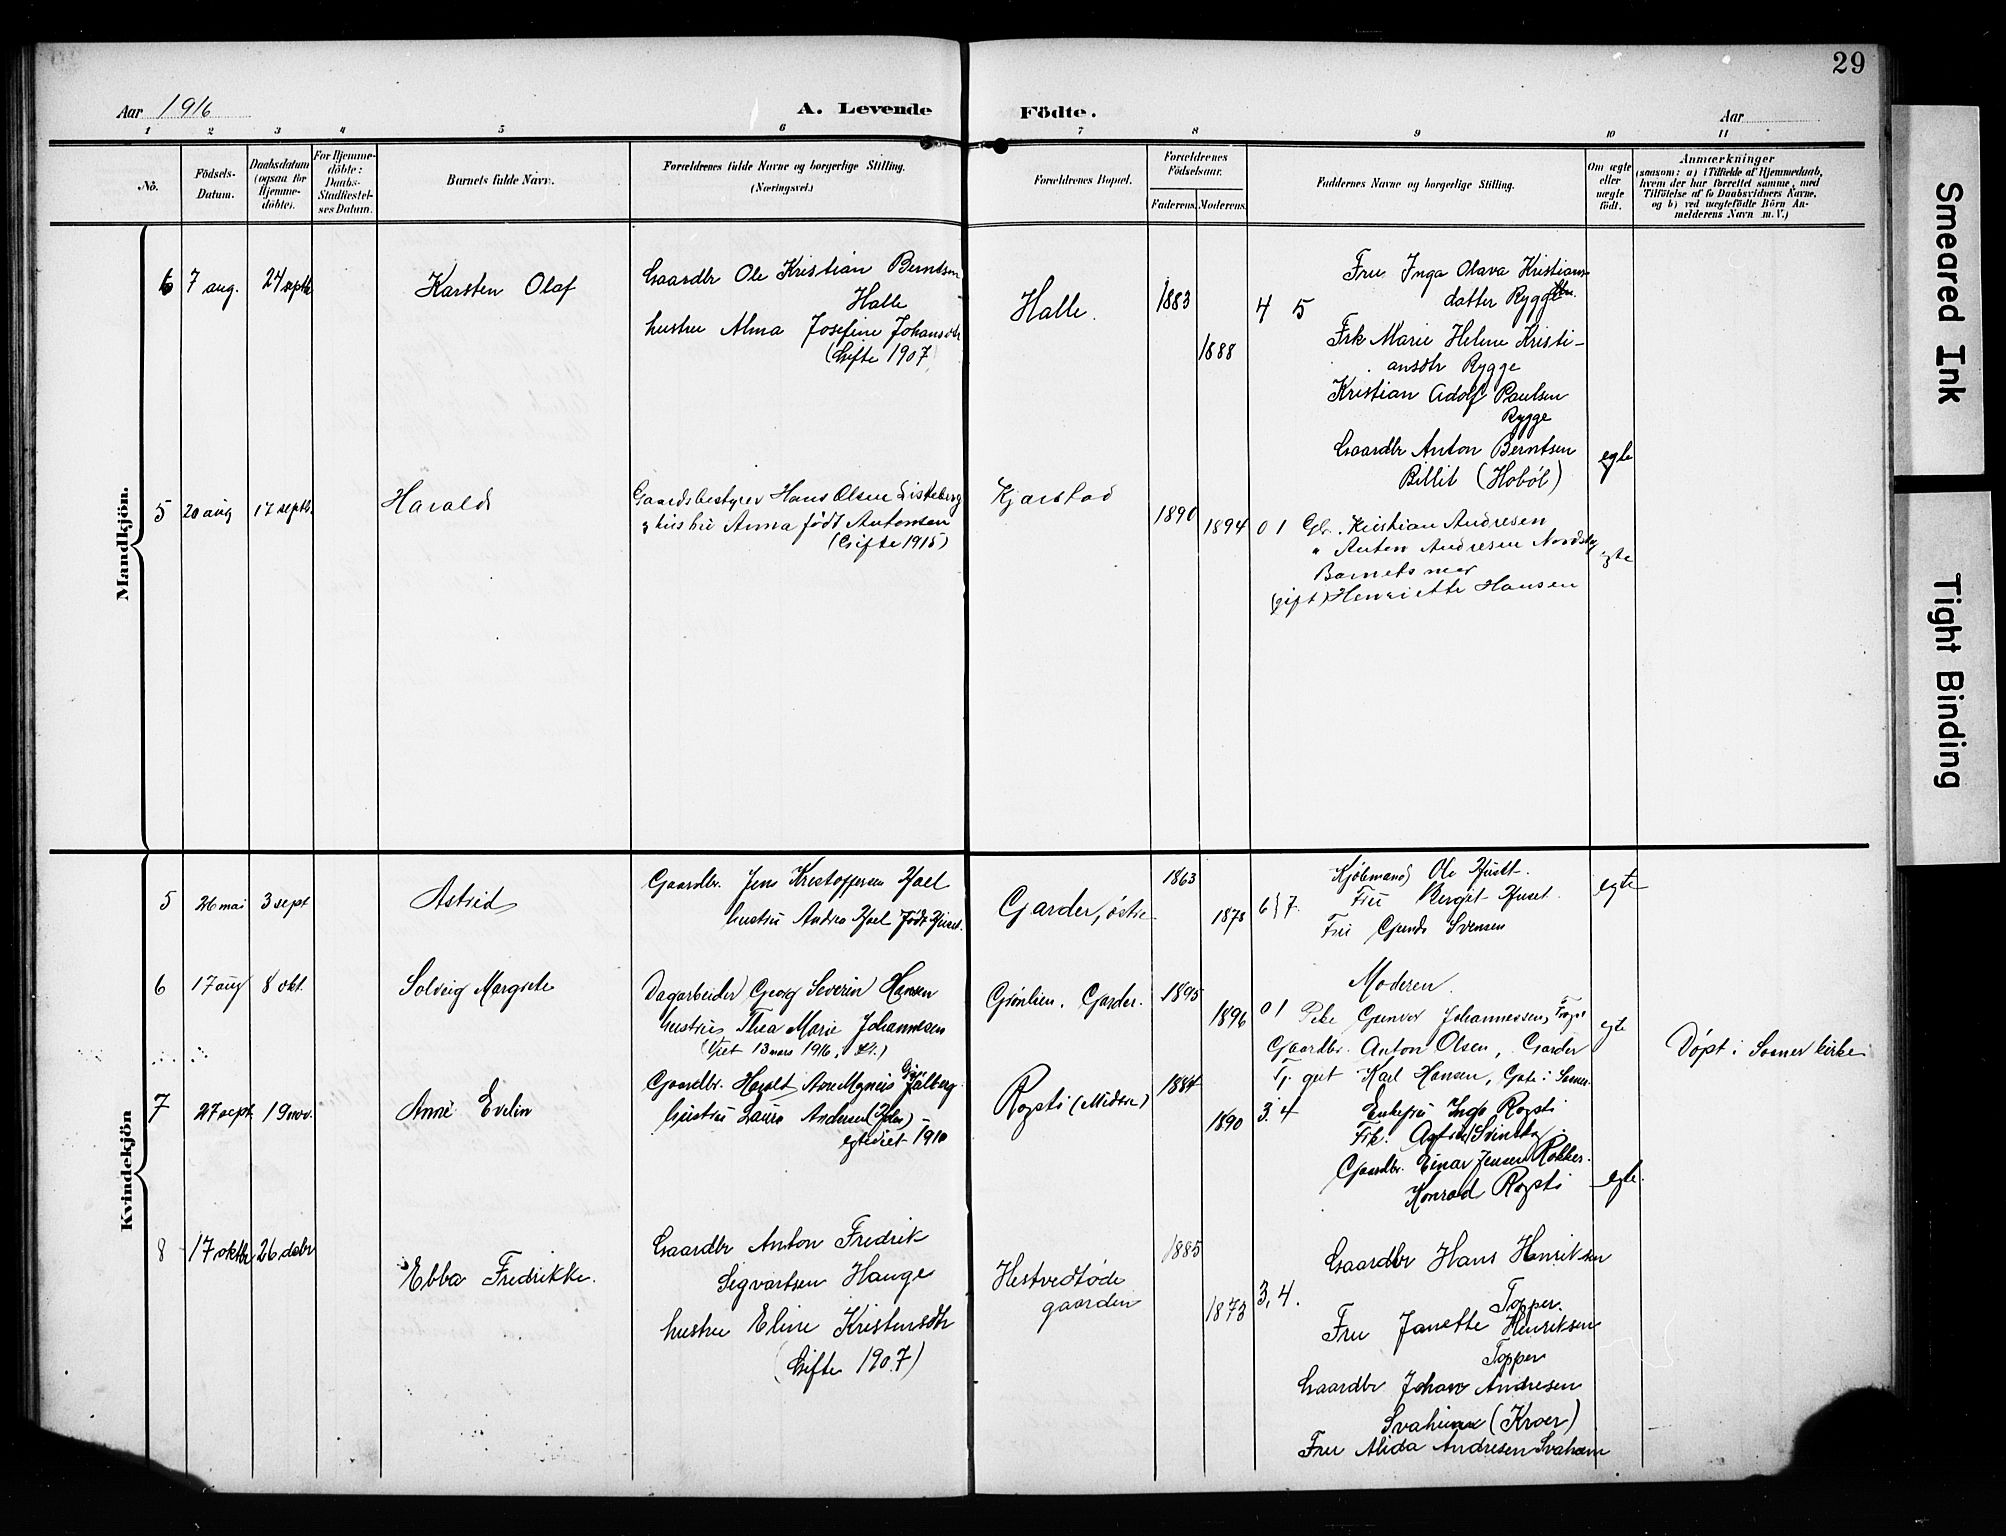 29
Aar 1916
A. Levende Födte.
Aar
1 2 3 4 5 6 7 8 9 10 11
No.
Födsels-Datum.
Daabsdatum (ogsaa for Hjemme-döbte).
For Hjemme-döbte: Daabs-Stadfæstel-ses Datum.
Barnets fulde Navn.
Forældrenes fulde Navne og borgerlige Stilling.
(Næringsvei.)
Forældrenes Bopæl.
Forældrenes Födselsaar.
Faderens. Moderens.
Faddernes Navne og borgerlige Stilling.
Om ægte eller uægte födt.
Anmærkninger
(saasom: a) i Tilfælde af Hjemmedaab, hvem der har forrettet samme, med Tilföielse af to Daabsvidners Navne, og b) ved uægtefödte Börn An-melderens Navn m. V.)
Mandkjön.
6 7 aug. 24 septb Karsten Olaf
Gaardbr Ole Kristian Berntsen
Halle
hustru Alma Josefine Johansdtr
(Gifte 1907)
Halle. 1883 1888 4 5
Fru Inga Olava Kristians-
datter Rygge
Frk Marie Helene Kristi-
ansdtr Rygge
Kristian Adolf Paulsen
Rygge
Gaardbr Anton Berntsen
Billit (Hobøl)
egte
5 20 aug 17 septb. Harald
Gaardsbestyrer Hans Olsen
hustru Anna født Antonsen
(Gifte 1915)
Kjærstad 1890 1894 0 1
Gb. Kristian Andresen
" Anton Andresen
Barnets mor
(gift) Henriette Hansen
egte
Kvindekjön
5 26 mai 3 sept Astrid
Gaardbr. Jens Kristoffersen
hustru Andrea født
Garder, østre. 1863 1878 6 7.
Kjøbmand Ole
Fru Bergit
Fru Svensen
egte
6 17 aug 8 okt. Solveig Margrete
Dagarbeider Georg Severin Hansen
hustru Thea Marie Johannesen
(Viet 13 mars 1916,
Grønlien. Garder. 1895 1896 0 1
Moderen.
Pike Gunvor Johannessen,
Gaardbr. Anton Olsen, Garder
Tj. gut Karl Hansen,
egte
Døpt i Soner kirke
7 27 sept 19 nov. Anne Evelin
Gaardbr. Harald
hustru Laura Andersen
egteviet 1910
Rogsti (Midtre) 1884 1890 3. 4
Enkefru Inga Rogsti
Frk. Agfrid
Gaardbr. Einar Jensen
Konrad Rogsti
egte.
8 17 oktbr 26 decbr Ebba Fredrikke.
Gaardbr Anton Fredrik
Sigvartsen Hauge
hustru Eline Kristensdtr
(Gifte 1907)
Hestvedtøde
gaarden
1885 1873 3, 4.
Gaardbr Hans Henriksen
Topper.
Fru Janette Henriksen
Topper
Gaardbr Johan Andresen
(Kroer)
Fru Alida Andresen
Smeared Ink
Tight Binding